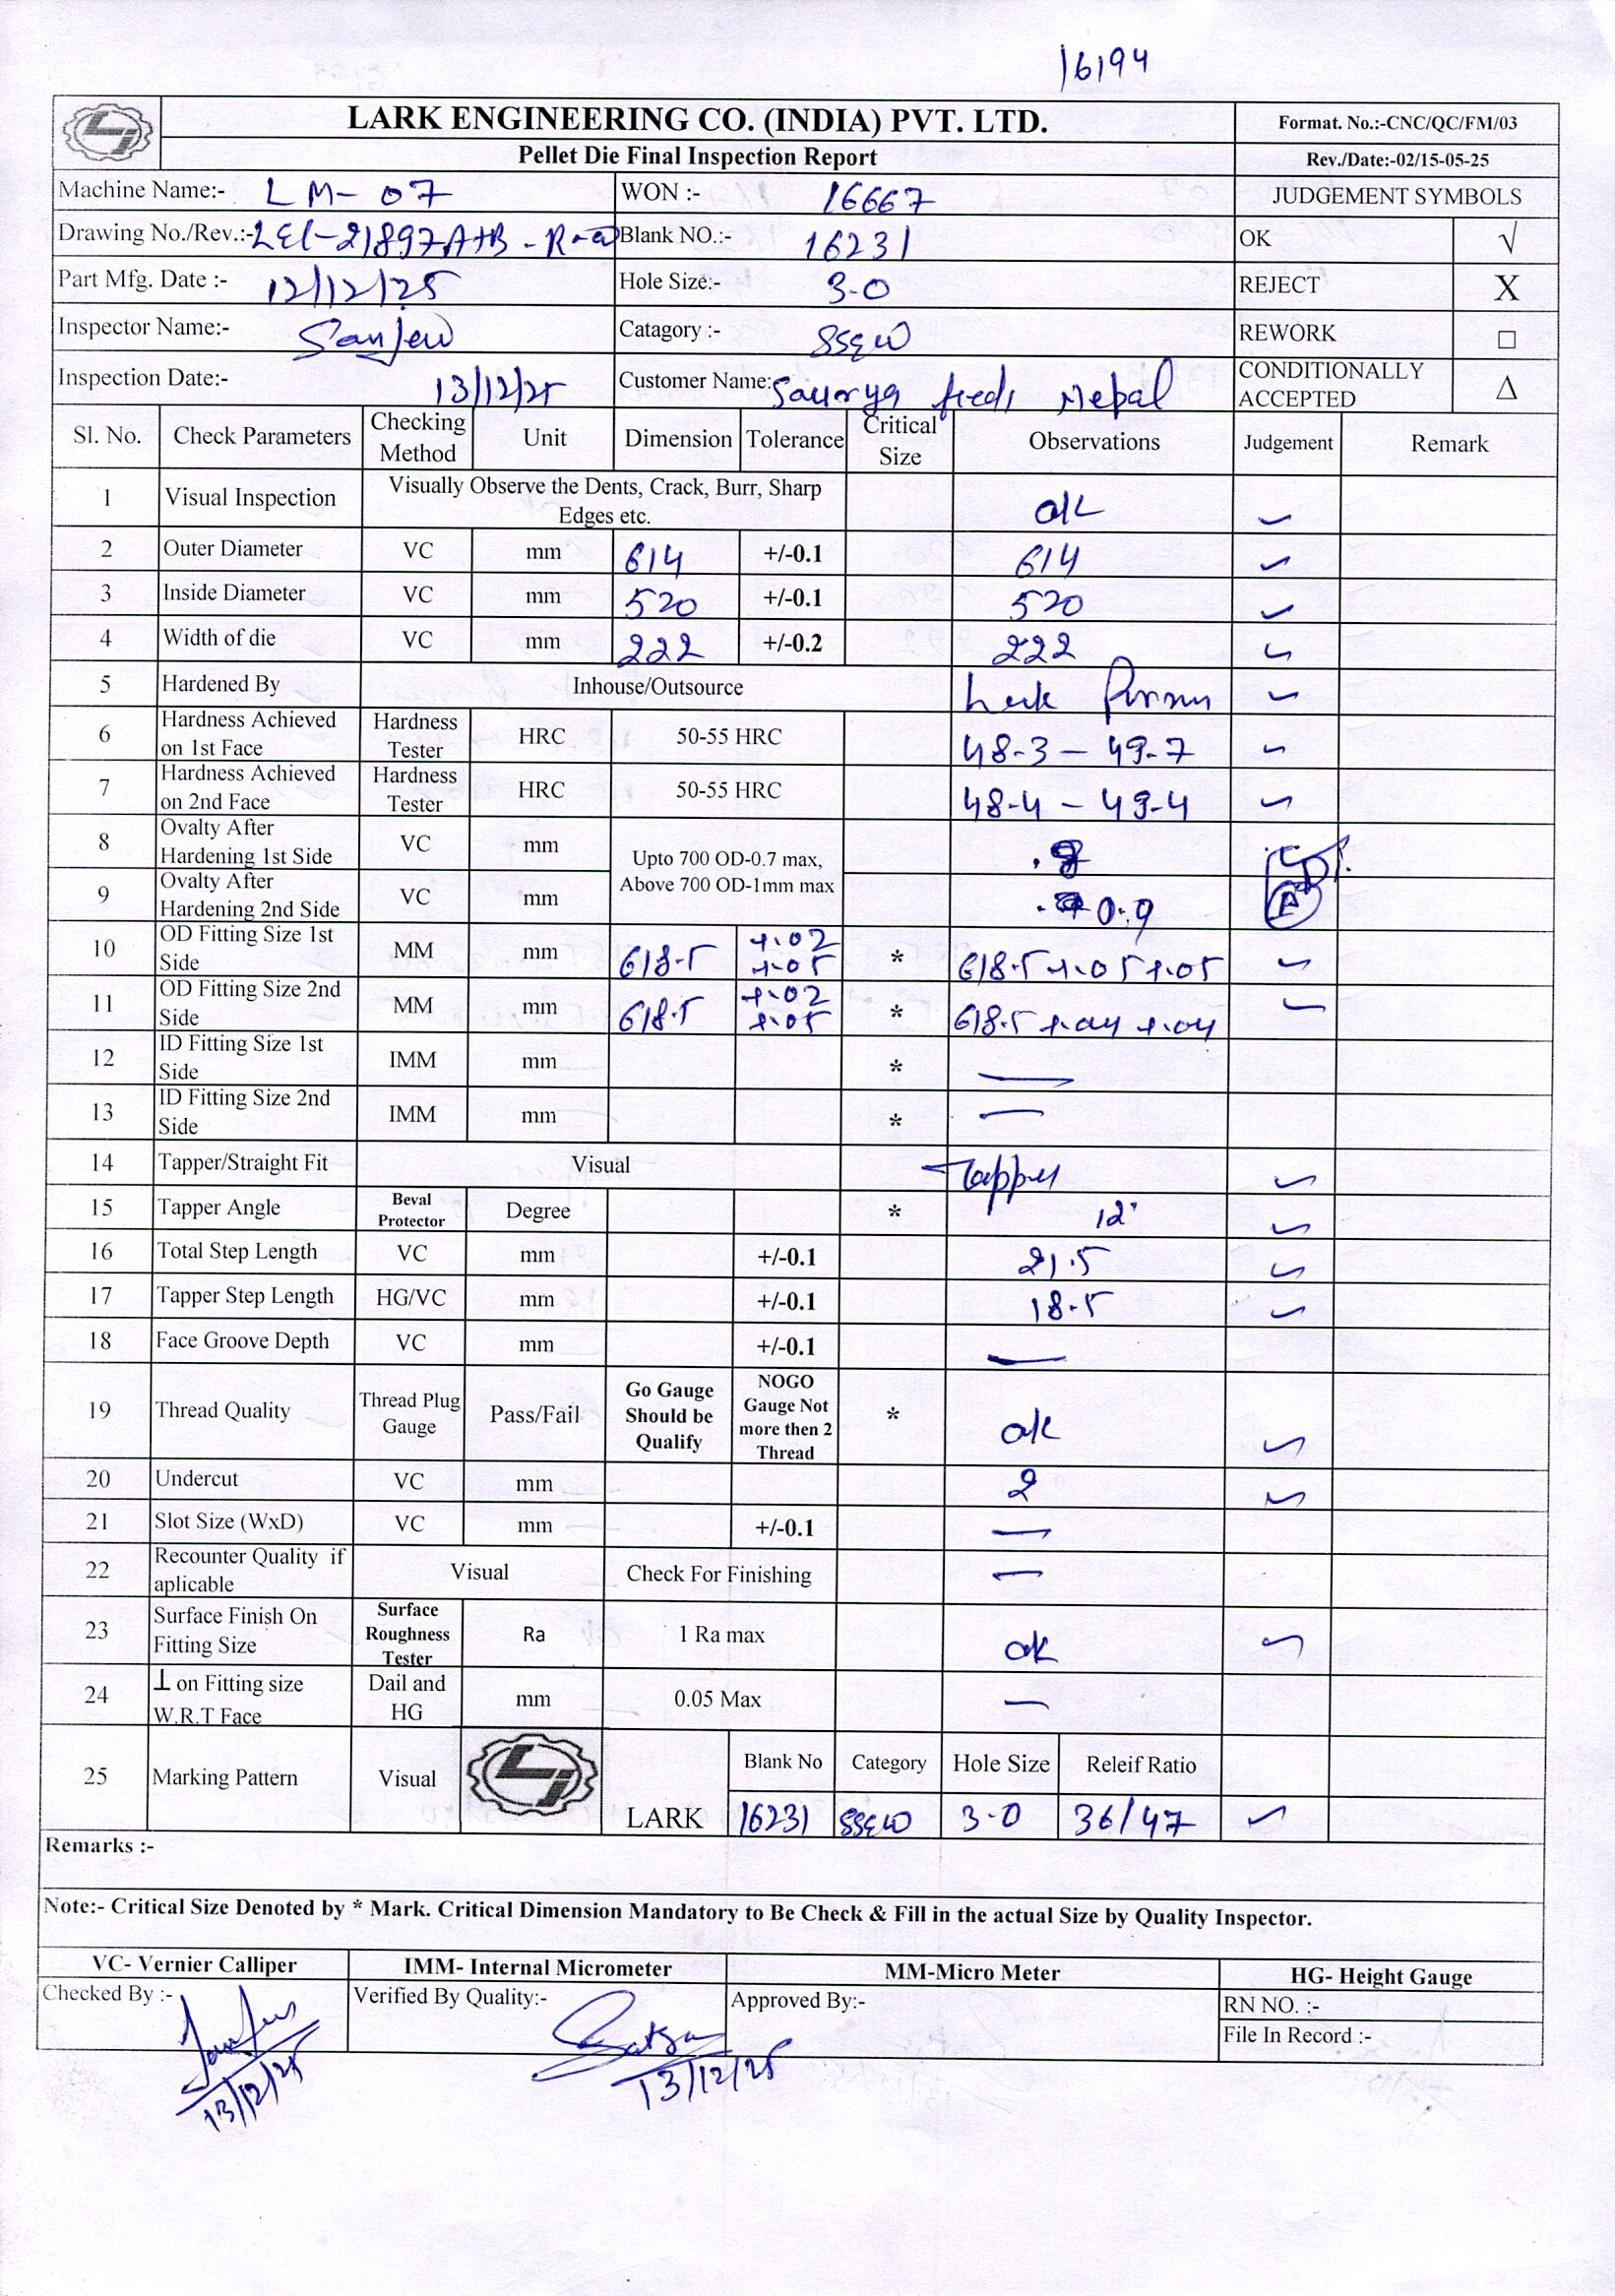 16194
LARK ENGINEERING CO. (INDIA) PVT. LTD.
Format. No.:-CNC/QC/FM/03
Pellet Die Final Inspection Report
Rev./Date:-02/15-05-25
Machine Name:- LM-07 WON :- 16667 JUDGEMENT SYMBOLS
Drawing No./Rev.:- LEI-21897A+B - R-0 Blank NO.:- 16231 OK √
Part Mfg. Date :- 12/12/25 Hole Size:- 3.0 REJECT X
Inspector Name:- Sanjeev Catagory :- SSEW REWORK □
Inspection Date:- 13/12/25 Customer Name: Saurya feeds Nepal CONDITIONALLY ACCEPTED Δ
Sl. No. Check Parameters Checking Method Unit Dimension Tolerance Critical Size Observations Judgement Remark
1 Visual Inspection Visually Observe the Dents, Crack, Burr, Sharp Edges etc. ok ✓
2 Outer Diameter VC mm 614 +/-0.1 614 ✓
3 Inside Diameter VC mm 520 +/-0.1 520 ✓
4 Width of die VC mm 222 +/-0.2 222 ✓
5 Hardened By Inhouse/Outsource ✓
6 Hardness Achieved on 1st Face Hardness Tester HRC 50-55 HRC 48.3 - 49.7 ✓
7 Hardness Achieved on 2nd Face Hardness Tester HRC 50-55 HRC 48.4 - 49.4 ✓
8 Ovalty After Hardening 1st Side VC mm Upto 700 OD-0.7 max, Above 700 OD-1mm max
9 Ovalty After Hardening 2nd Side VC mm 0.9
10 OD Fitting Size 1st Side MM mm 618.5 +.02 +.05 * 618.5 +.05 +.05 ✓
11 OD Fitting Size 2nd Side MM mm 618.5 +.02 +.05 * 618.5 +.04 +.04 ✓
12 ID Fitting Size 1st Side IMM mm * —
13 ID Fitting Size 2nd Side IMM mm * —
14 Tapper/Straight Fit Visual Tapper ✓
15 Tapper Angle Beval Protector Degree * 12° ✓
16 Total Step Length VC mm +/-0.1 21.5 ✓
17 Tapper Step Length HG/VC mm +/-0.1 18.5 ✓
18 Face Groove Depth VC mm +/-0.1 —
19 Thread Quality Thread Plug Gauge Pass/Fail Go Gauge Should be Qualify NOGO Gauge Not more then 2 Thread * ok ✓
20 Undercut VC mm 2 ✓
21 Slot Size (WxD) VC mm +/-0.1 —
22 Recounter Quality if aplicable Visual Check For Finishing —
23 Surface Finish On Fitting Size Surface Roughness Tester Ra 1 Ra max ok ✓
24 ⊥ on Fitting size W.R.T Face Dail and HG mm 0.05 Max —
25 Marking Pattern Visual LARK Blank No Category Hole Size Releif Ratio
16231 SSEW 3.0 36/47 ✓
Remarks :-
Note:- Critical Size Denoted by * Mark. Critical Dimension Mandatory to Be Check & Fill in the actual Size by Quality Inspector.
VC- Vernier Calliper IMM- Internal Micrometer MM-Micro Meter HG- Height Gauge
Checked By :- Verified By Quality:- Approved By:- RN NO. :-
File In Record :-
13/12/25 13/12/25